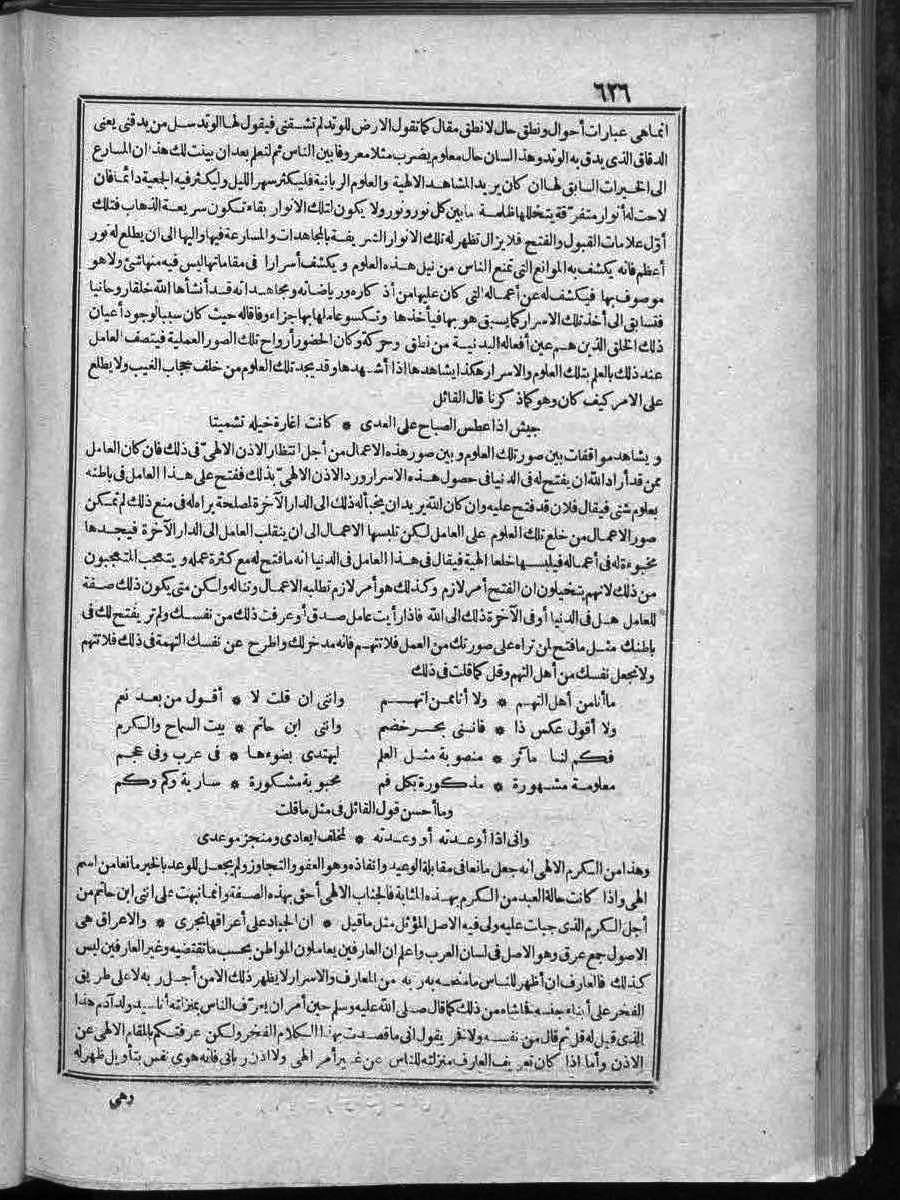 ٦٢٦
انما هي عبارات أحوال ونطق حال لا نطق مقال كما تقول الارض للوتد لم تشقني فيقول لها الوتد سل من يدقني يعني
الدقاق الذي يدق به الوتد وهذا لسان حال معلوم يضرب مثلا معروفا بين الناس ثم لتعلم بعد ان بينت لك هذا ان المسارع
الى الخيرات السابق لها ان كان يريد المشاهد الالهية والعلوم الربانية فليكثر سهر الليل وليكثر فيه الجمعية دائما فان
لاحت له أنوار متفرّقة يتخللها ظلمة ما بين كل نور ونور ولا يكون لتلك الانوار بقاء تكون سريعة الذهاب فتلك
أوّل علامات القبول والفتح فلا يزال تظهر له تلك الانوار الشريفة بالمجاهدات والمسارعة فيها واليها الى ان يطلع له نور
أعظم فانه يكشف به الموانع التي تمنع الناس من نيل هذه العلوم ويكشف أسرارا في مقاماتها ليس فيه منها شئ ولا هو
موصوف بها فيكشف له عن أعماله التي كان عليها من أذكاره ورياضاته ومجاهداته قد أنشأها الله خلقا روحانيا
فتسابق الى أخذ تلك الاسرار كما يسبق هو بها فيأخذها وتكسو عاملها بها جزاء وفاقا له حيث كان سببا لوجود أعيان
ذلك الخلق الذين هم عين أفعاله البدنية من نطق وحركة وكان الحضور أرواح تلك الصور العملية فيتصف العامل
عند ذلك بالعلم بتلك العلوم والاسرار هكذا يشاهدها اذا أشهدها وقد يجد تلك العلوم من خلف حجاب الغيب ولا يطلع
على الامر كيف كان وهو كما ذكرنا قال القائل
جيش اذا عطس الصباح على العدى * كانت اغارة خيله تشميتا
ويشاهد مواقفات بين صور تلك العلوم وبين صور هذه الاعمال من أجل انتظار الاذن الالهيّ في ذلك فان كان العامل
ممن قد أراد الله ان يفتح له في الدنيا في حصول هذه الاسرار ورد الاذن الالهيّ بذلك ففتح على هذا العامل في باطنه
بعلوم شتى فيقال فلان قد فتح عليه وان كان الله يريد ان يخبأ له ذلك الى الدار الآخرة لمصلحة يراها له في منع ذلك لم تتمكن
صور الاعمال من خلع تلك العلوم على العامل لكن تلبسها الاعمال الى ان ينقلب العامل الى الدار الآخرة فيجدها
مخبوءة له في أعماله فيلبسها خلعا الهية فيقال في هذا العامل في الدنيا انه ما فتح له مع كثرة عمله ويتعجب المتعجبون
من ذلك لانهم يتخيلون ان الفتح أمر لازم وكذلك هو أمر لازم تطلبه الاعمال وتناله ولكن متى يكون ذلك صفة
للعامل هل في الدنيا أو في الآخرة ذلك الى الله فاذا رأيت عامل صدق أو عرفت ذلك من نفسك ولم تر يفتح لك في
باطنك مثل ما فتح لمن تراه على صورتك من العمل فلا تتهم فانه مدخر لك واطرح عن نفسك التهمة في ذلك فلا تتهم
ولا تجعل نفسك من أهل التهم وقل كما قلت في ذلك
ما أنا من أهل التهم * ولا أنا ممن اتهم وانني ان قلت لا * أقول من بعد نعم
ولا أقول عكس ذا * فانني بحر خضم وانني ابن حاتم * بيت السماح والكرم
فكم لنا مآثر * منصوبة مثل العلم ليهتدى بضوءها * في عرب وفي عجم
معلومة مشهورة * مذكورة بكل فم محبوبة مشكورة * سارية وكم وكم
وما أحسن قول القائل في مثل ما قلت
واني اذا أوعدته أو وعدته * لمخلف ايعادي ومنجز موعدي
وهذا من الكرم الالهي انه جعل مانعا في مقابلة الوعيد وانفاذه وهو العفو والتجاوز ولم يجعل للوعد بالخير مانعا من اسم
الهي واذا كانت حالة العبد من الكرم بهذه المثابة فالجناب الالهي أحق بهذه الصفة وانما نبهت على انني ابن حاتم من
أجل الكرم الذي جبلت عليه ولي فيه الاصل المؤثل مثل ما قيل * ان الجياد على أعراقها تجري * والاعراق هي
الاصول جمع عرق وهو الاصل في لسان العرب واعلم ان العارفين يعاملون المواطن بحسب ما تقتضيه وغير العارفين ليس
كذلك فالعارف ان أظهر للناس ما منحه به ربه من المعارف والاسرار لا يظهر ذلك الا من أجل ربه لا على طريق
الفخر على أبناء جنسه فحاشاه من ذلك كما قال صلى الله عليه وسلم حين أمر ان يعرّف الناس بمنزلته أنا سيد ولد آدم هذا
الذي قيل له قل ثم قال من نفسه ولا فخر يقول اني ما قصدت بهذا الكلام الفخر ولكن عرفتكم بالمقام الالهي عن
الاذن وأما اذا كان تعريف العارف منزلته للناس عن غير أمر الهي ولا اذن رباني فانه هوى نفس بتأويل ظهر له
وهي